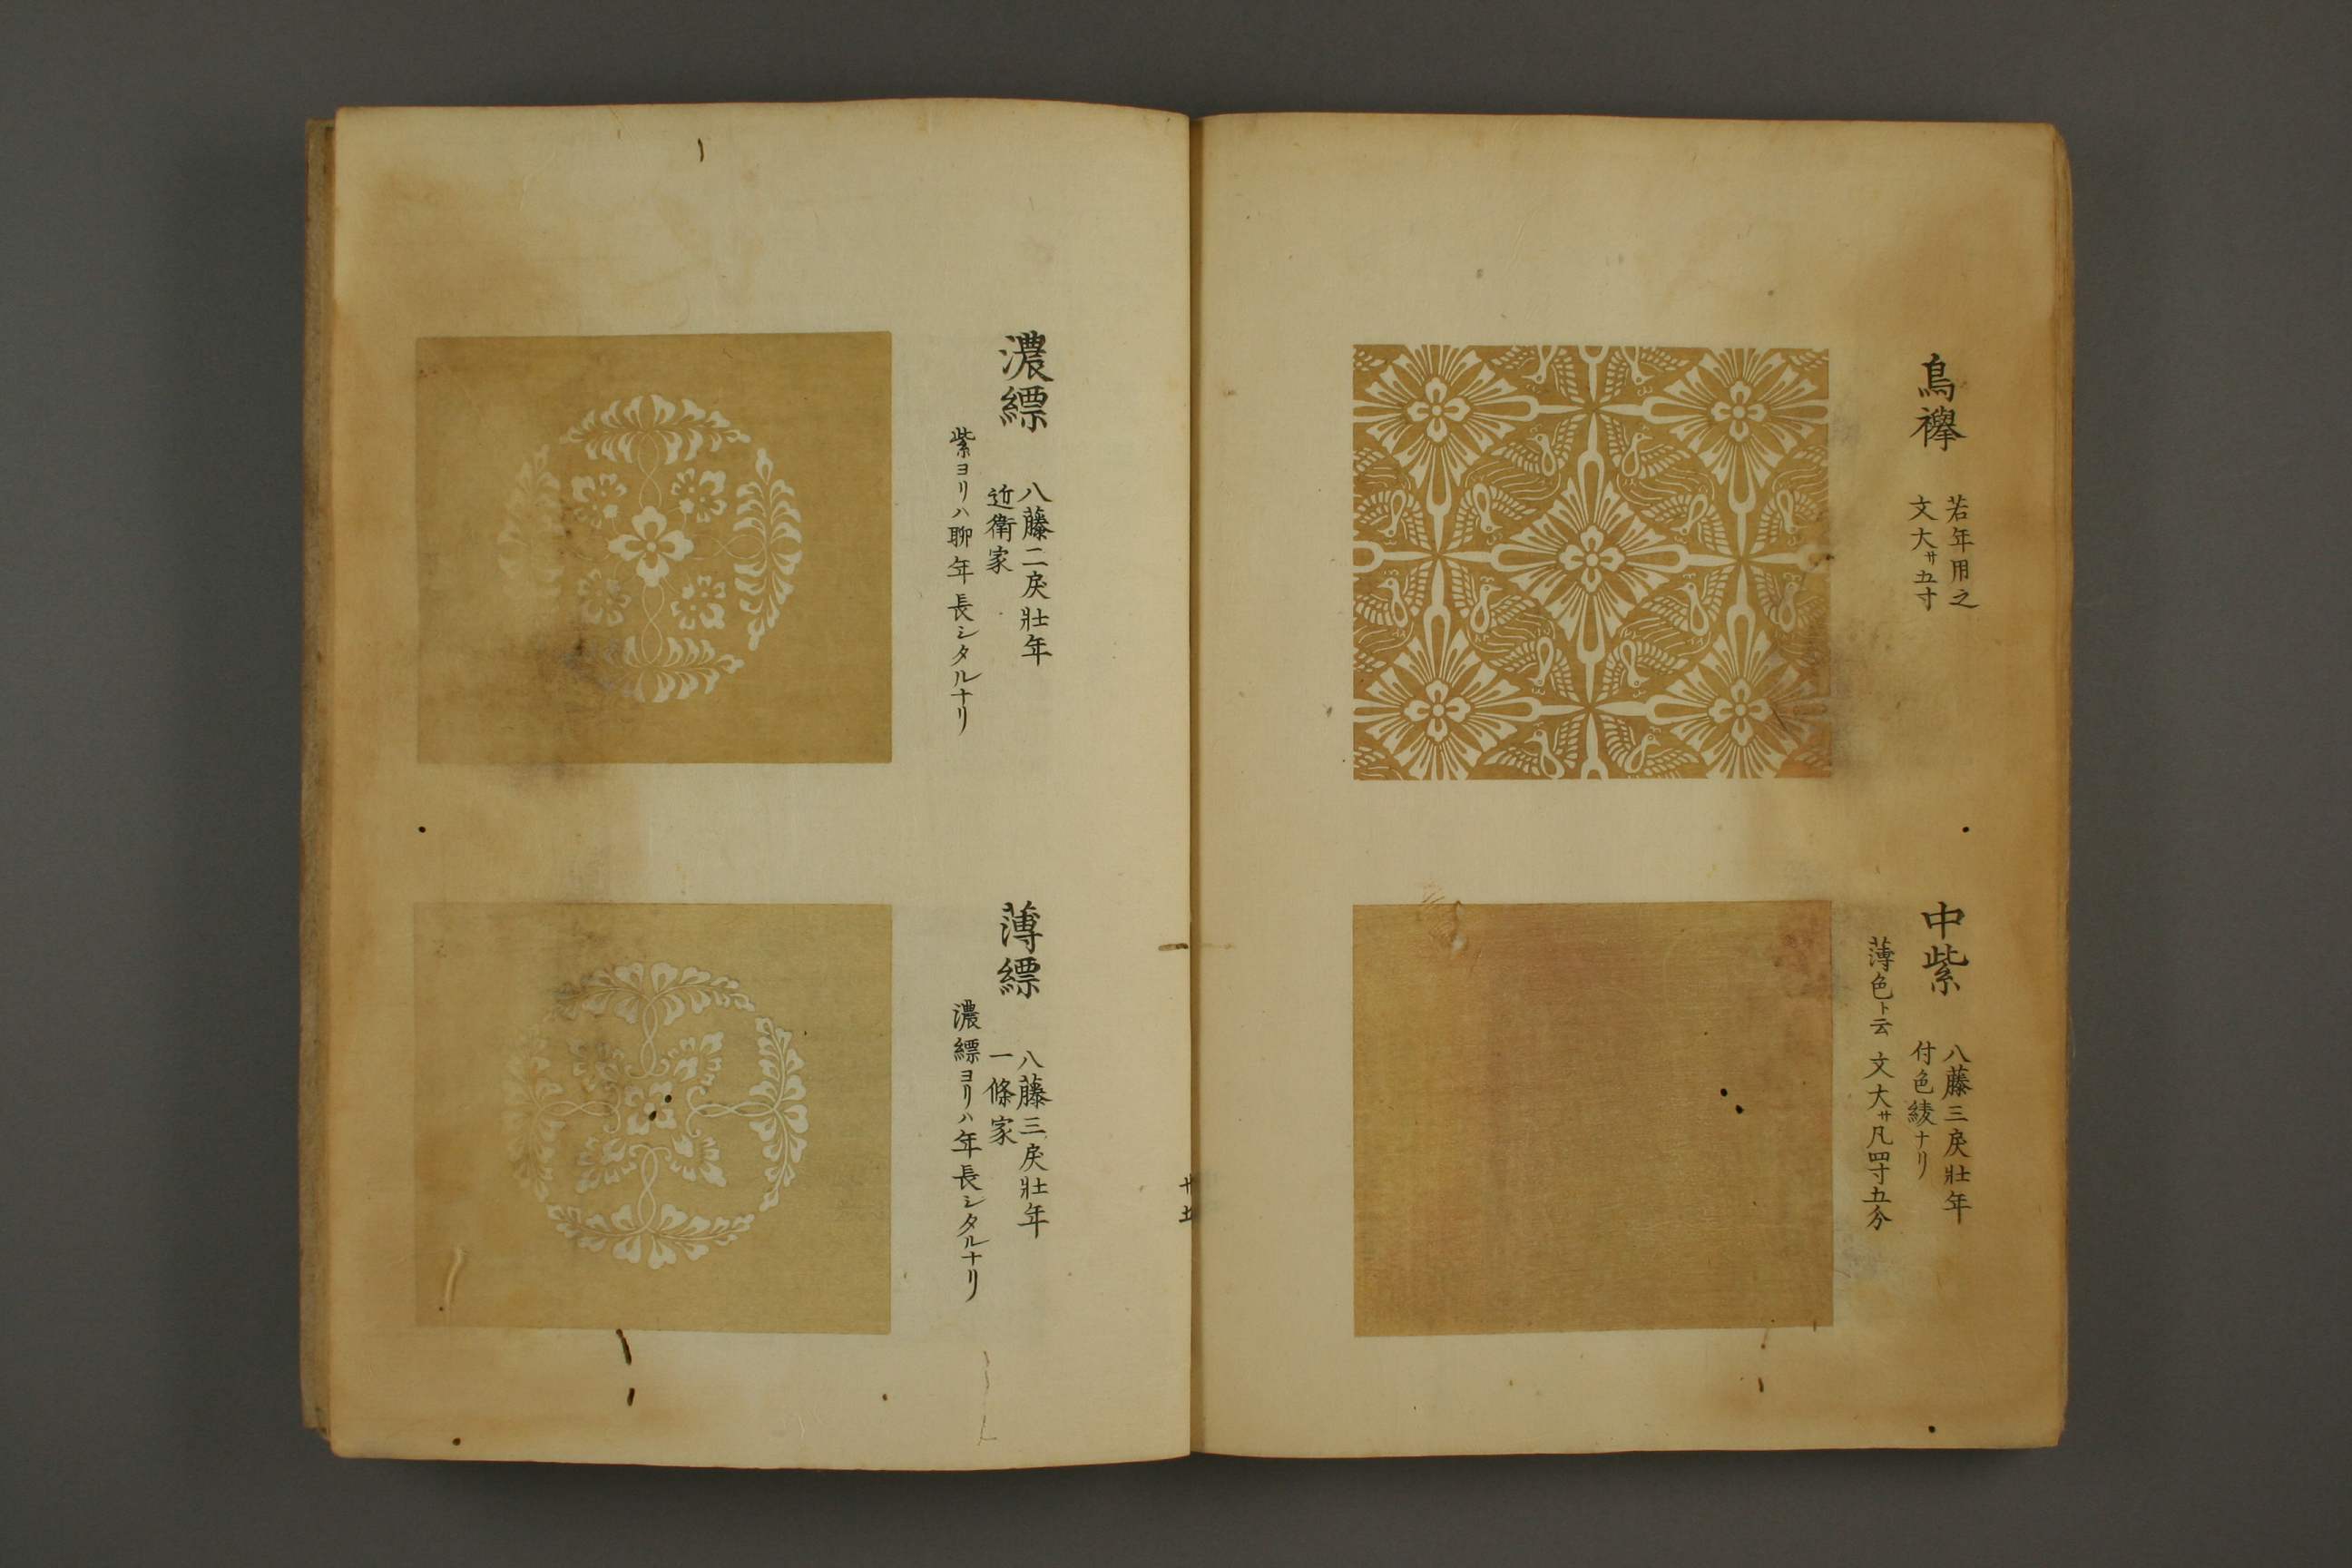 鳥襷
若年用之
文大サ五寸
中紫
八藤三戻壮年
付色綾ナリ
薄色ト云 文大サ凡四寸五分
濃縹
八藤二戻壮年
近衛家
紫ヨリハ聊年長シタルナリ
薄縹
八藤三戻壮年
一條家
濃縹ヨリハ年長シタルナリ